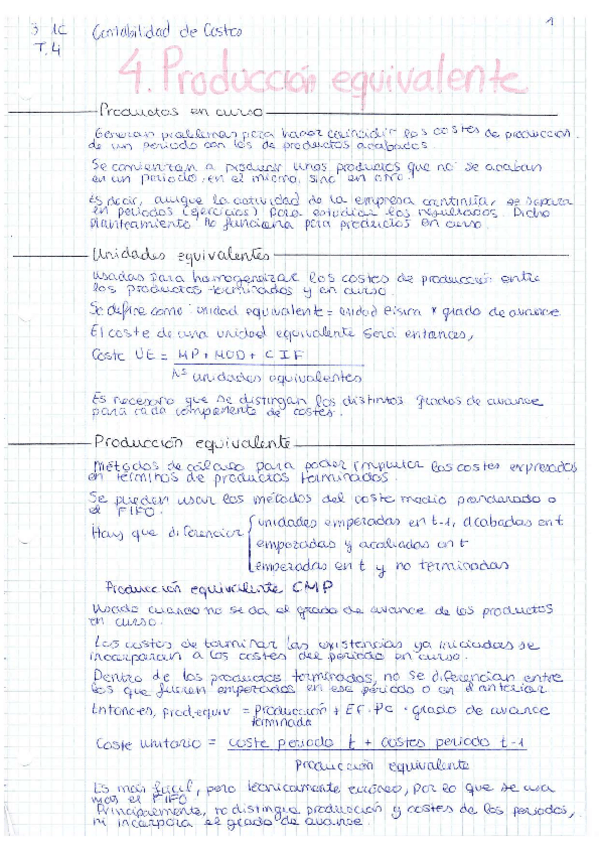 3 1C Contabilidad de Costes 1
T.4
4. Producción equivalente
Productos en curso
Generan problemas para hacer coincidir los costes de producción
de un periodo con los de productos acabados
Se comienzan a producir unos productos que no se acaban
en un periodo en el mismo, sino en otro.
Es decir, aunque la actividad de la empresa continúa, se separa
en periodos (ejercicios) para estudiar los resultados. Dicho
planteamiento no funciona para productos en curso.
Unidades equivalentes
Usadas para homogeneizar los costes de producción entre
los productos terminados y en curso.
Se define como: unidad equivalente = unidad física × grado de avance
El coste de una unidad equivalente será entonces,
Coste UE = MP + MOD + CIF
Nº unidades equivalentes
Es necesario que se distingan los distintos grados de avance
para cada componente de costes.
Producción equivalente
Métodos de cálculo para poder imputar los costes expresados
en términos de productos terminados.
Se pueden usar los métodos del coste medio ponderado o
el FIFO.
Hay que diferenciar unidades empezadas en t-1, acabadas en t
empezadas y acabadas en t
empezadas en t y no terminadas
Producción equivalente CMP
Usado cuando no se da el grado de avance de los productos
en curso.
Los costes de terminar las existencias ya iniciadas se
incorporan a los costes del periodo en curso.
Dentro de los productos terminados, no se diferencian entre
los que fueron empezados en ese periodo o en el anterior
Entonces, prod.equiv = Producción + EF.PC · grado de avance
terminada
Coste unitario = coste periodo t + costes periodo t-1
Producción equivalente
Es más fácil, pero técnicamente erróneo, por lo que se usa
más el FIFO
Principalmente, no distingue producción y costes de los periodos,
ni incorpora el grado de avance.